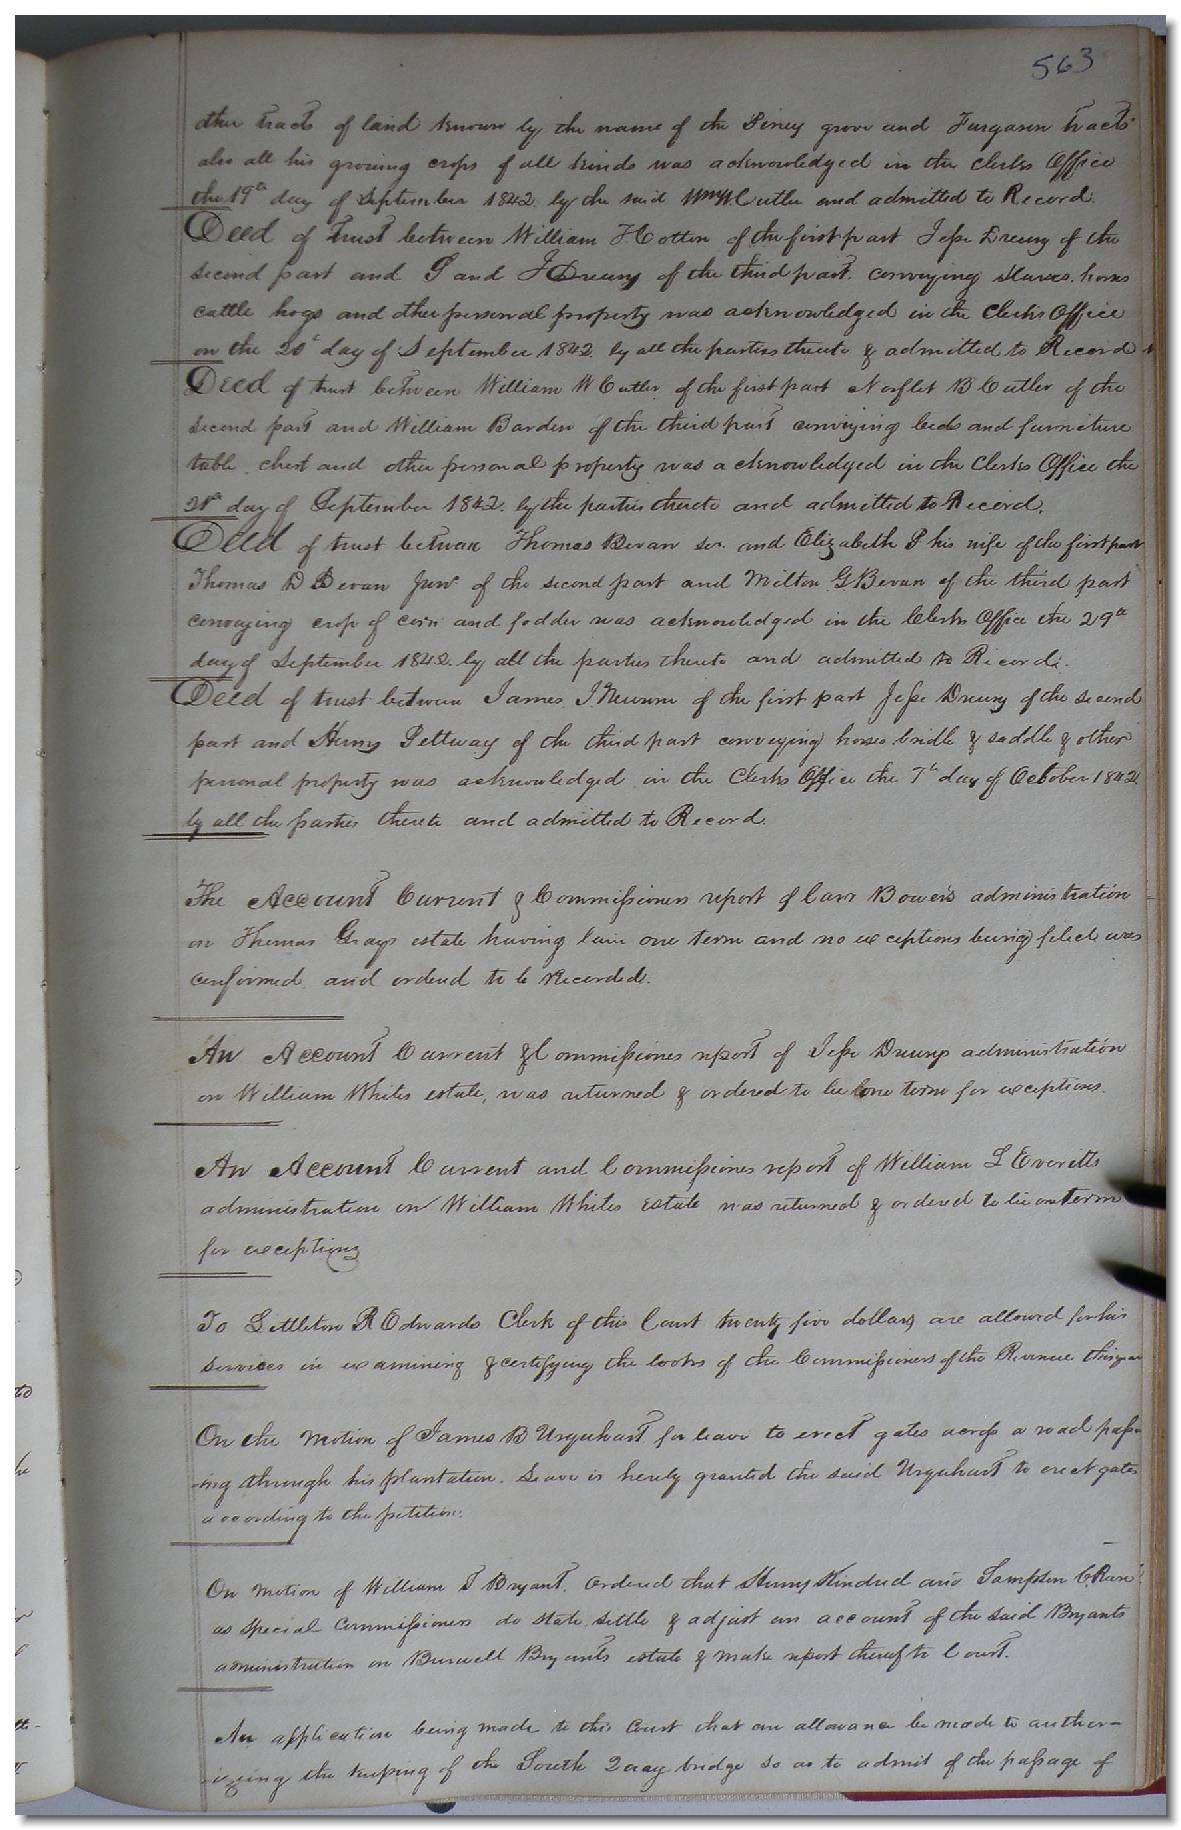 563
other tracts of land known by the name of the Piney grove and Furgason tracts
also all his growing crops of all kinds was acknowledged in the Clerks Office
the 19th day of September 1842. by the said Wm W. Cutler and admitted to Record.
Deed of trust between William H Cotten of the first part Jesse Drewry of the
second part and S and J Drewry of the third part. conveying slaves. horses
cattle hogs and other personal property was acknowledged in the Clerks Office
on the 20th day of September 1842. by all the parties thereto & admitted to Record
Deed of trust between William W Cutler of the first part Norflet B Cutler of the
second part and William Barden of the third part conveying beds and furniture
table, chest and other personal property was acknowledged in the Clerks Office the
day of September 1842. by the parties thereto and admitted to Record.
Deed of trust between Thomas Bevan Sr. and Elizabeth P his wife of the first part
Thomas D Bevan Junr of the second part and Milton G Bevan of the third part
conveying crop of corn and fodder was acknowledged in the Clerks Office the 29th
day of September 1842. by all the parties thereto and admitted to Record.
Deed of trust between James of the first part Jesse Drewry of the second
part and Henry Pettway of the third part conveying horses bridle & saddle & other
personal property was acknowledged in the Clerks Office the 7th day of October 1842
by all the parties thereto and admitted to Record.
The Account Current & Commissioners report of Carr Bowers administration
on Thomas Grays estate having lain one term and no exceptions being filed was
confirmed and ordered to be Recorded.
An Account Current & Commissioners report of Jesse Drewrys administration
on William Whites estate, was returned & ordered to lie one term for exceptions.
An Account Current and Commissioners report of William L Everetts
administration on William Whites estate was returned & ordered to lie one term
for exceptions
To Littleton R Edwards Clerk of this Court twenty five dollars are allowed for his
services in examining & certifying the books of the Commissioners of the Revenue this year
On the motion of James B Urquhart for leave to erect gates across a road pass-
-ing through his plantation. Leave is hereby granted the said Urquhart to erect gates
according to the petition.
On motion of William T Bryant. Ordered that Henry Kindred and Sampson C
as special Commissioners do state, settle & adjust an account of the said Bryants
administration on Burwell Bryants estate & make report thereof to Court.
An application being made to this Court that an allowance be made to author-
-izing the keeping of the South Quay bridge so as to admit of the passage of